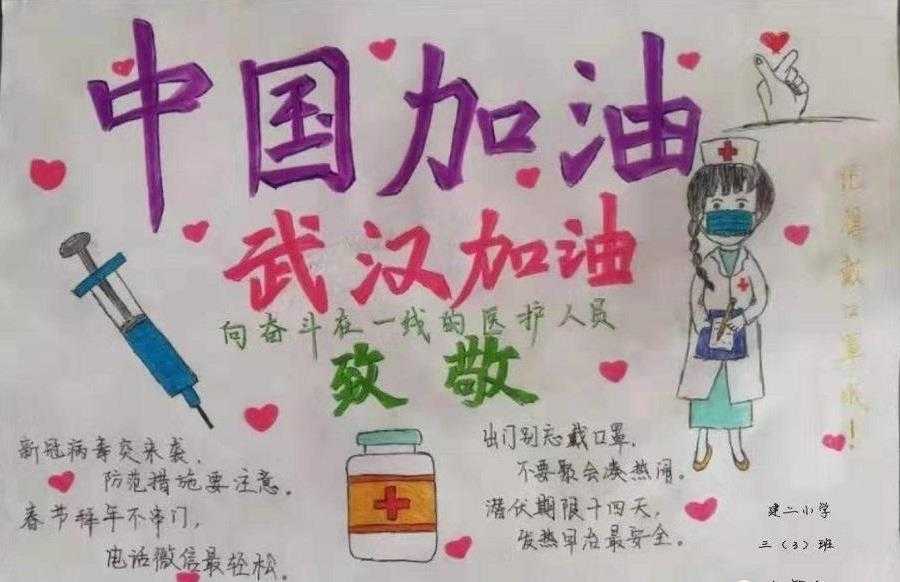 中国加油
武汉加油
向奋斗在一线的医护人员
致敬
新冠病毒炎来袭,
防范措施要注意。
春节拜年不串门,
电话微信最轻松。
出门别忘戴口罩,
不要聚会凑热闹。
潜伏期限十四天,
发热早治最安全。
戴口罩哦!
建二小学
三(3)班